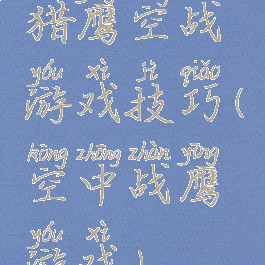 猎鹰空战
yóu xì jì qiǎo
游戏技巧(
kōng zhōng zhàn yīng
空中战鹰
yóu xì
游戏)